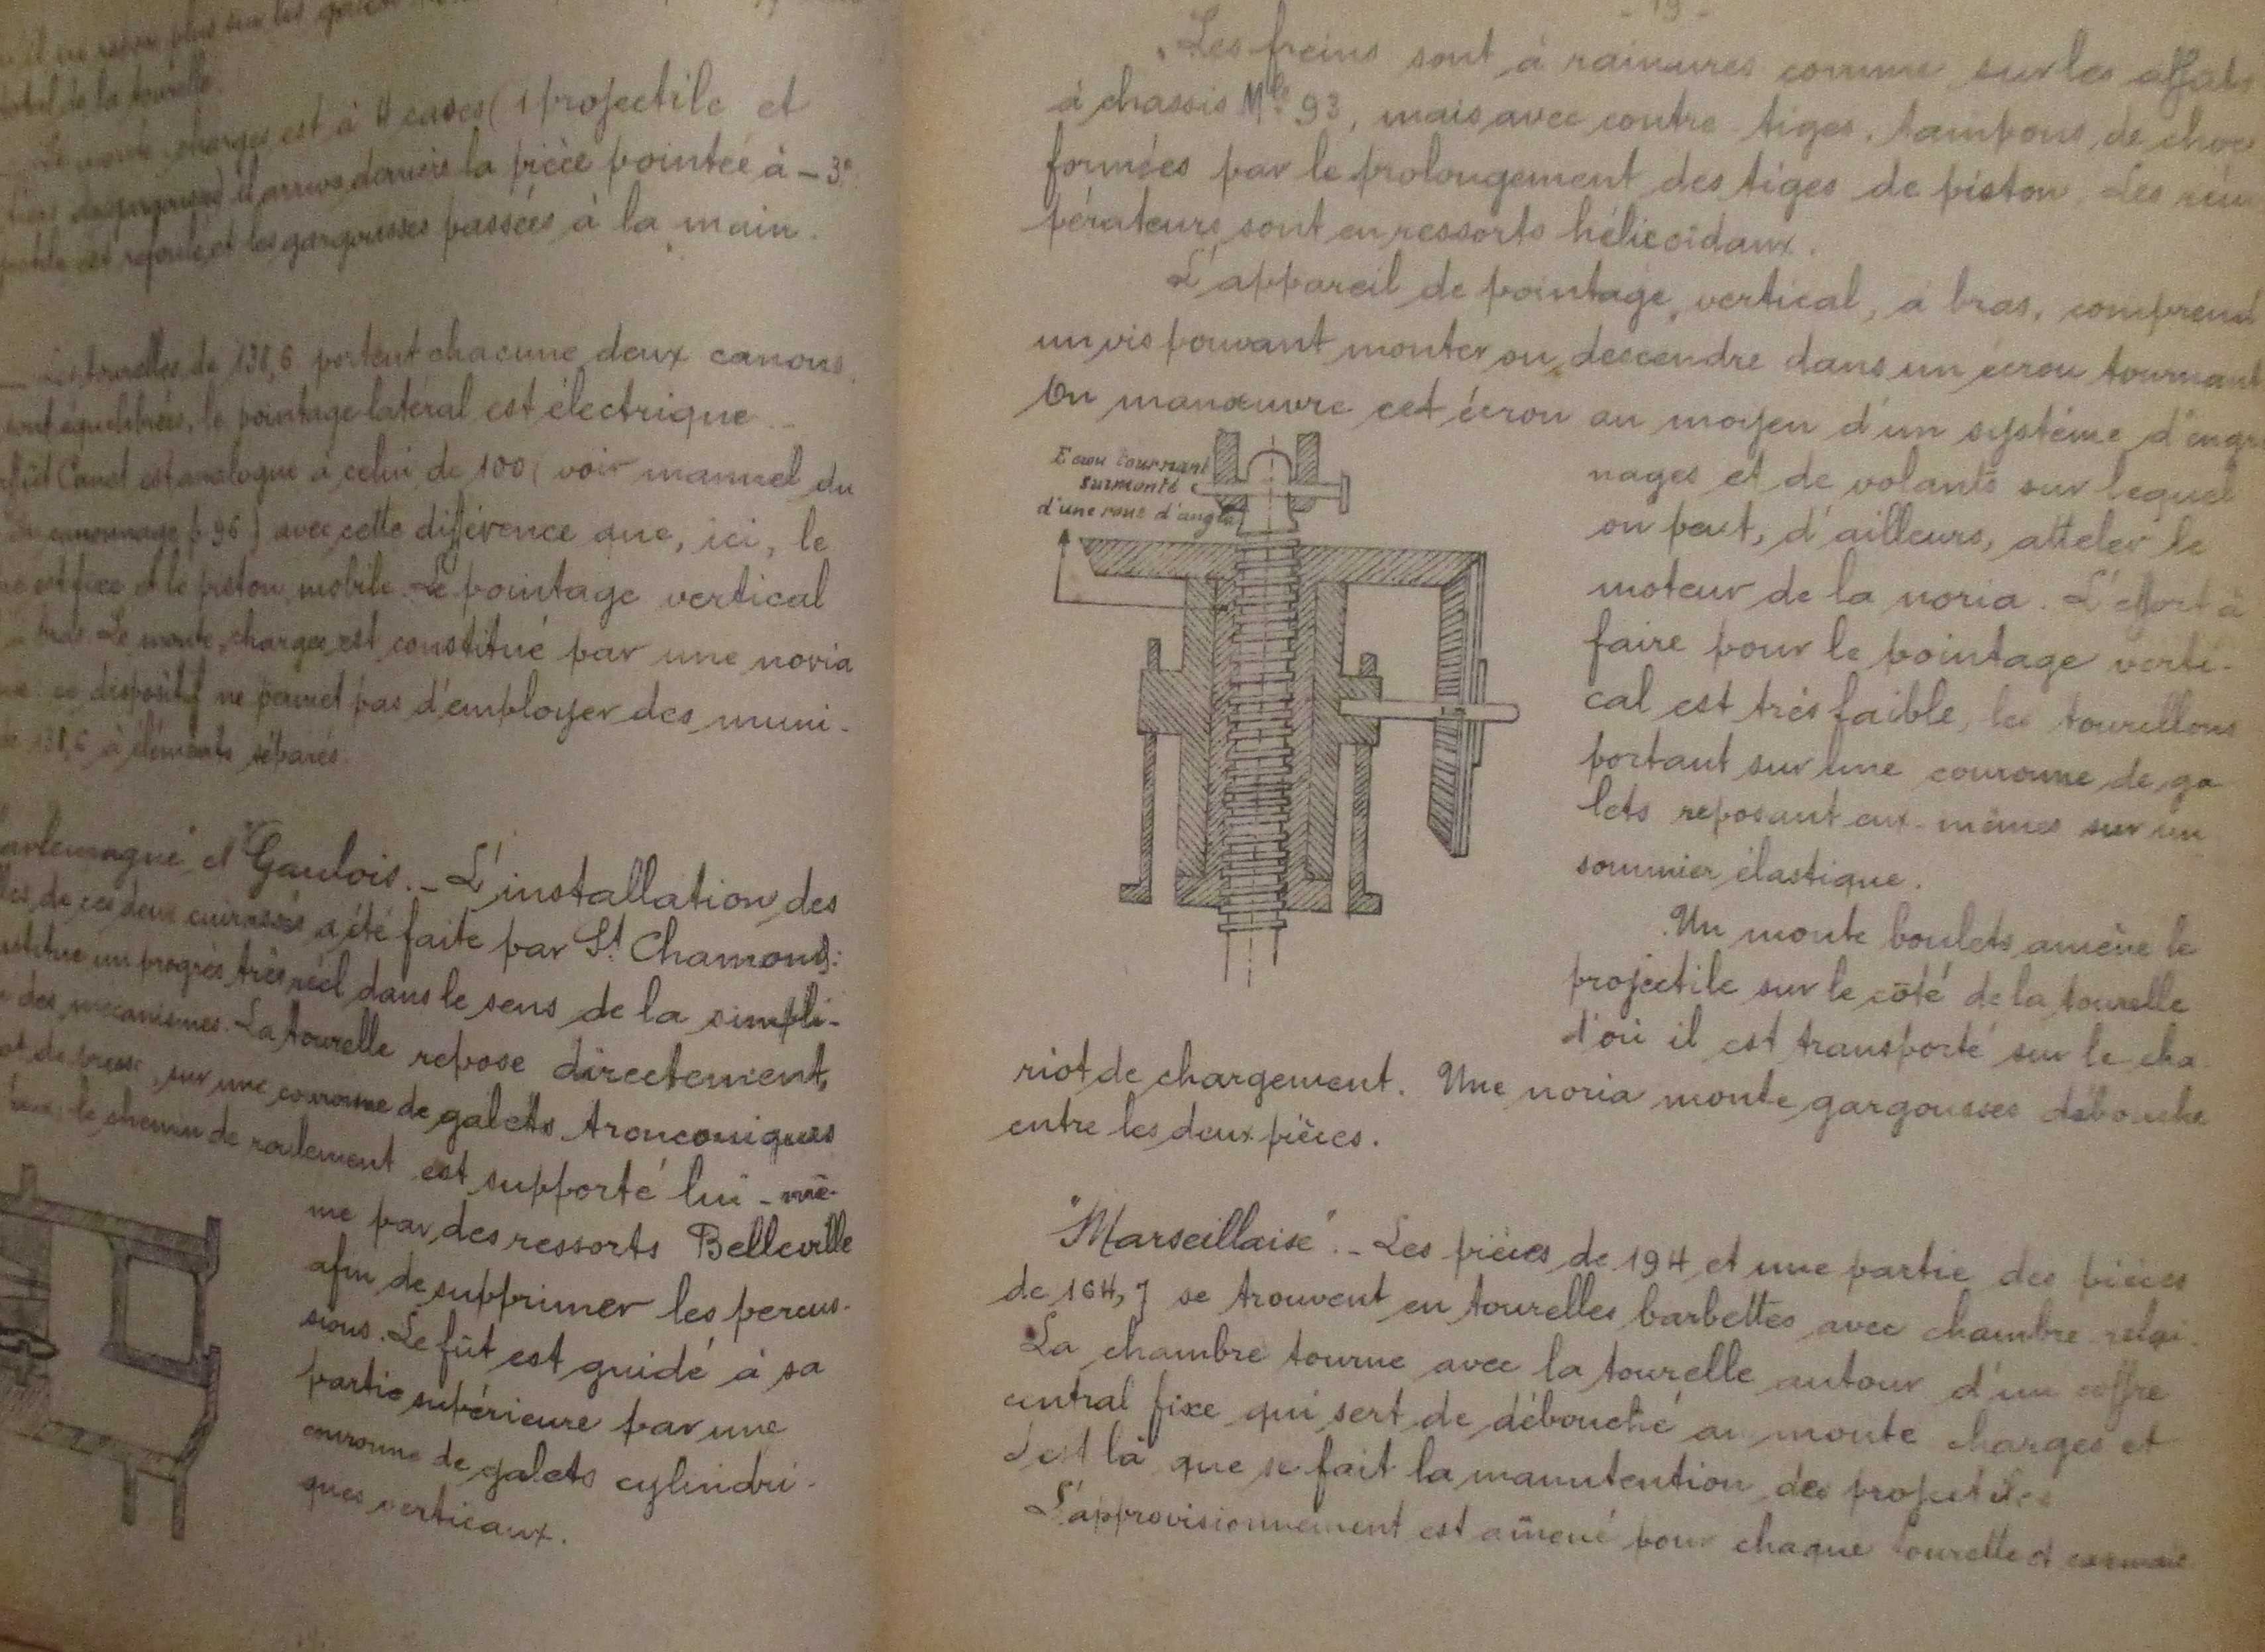 total de la tourelle.
Le monte-charges est à 4 cases (1 projectile et
tiers de gargousses) il arrive derrière la pièce pointée à - 3°.
est refoulé, et les gargousses passées à la main.
Les tourelles de 138,6 portent chacune deux canons.
sont équilibrées, le pointage latéral est électrique
Canet est analogue à celui de 100 (voir manuel du
canonnage p 96) avec cette différence que, ici, le
est fixe et le piston mobile. Le pointage vertical
à bras. Le monte-charges est constitué par une noria
ce dispositif ne permet pas d'employer des muni-
de 138,6 à éléments séparés.
et "Gaulois". - L'installation des
de ces deux cuirassés a été faite par St Chamond:
un progrès très réel dans le sens de la simpli-
des mécanismes. La tourelle repose directement,
sur une couronne de galets tronconiques
le chemin de roulement est supporté lui-mê-
me par des ressorts Belleville
afin de supprimer les percus-
sions. Le fût est guidé à sa
partie supérieure par une
couronne de galets cylindri-
ques verticaux.
- 19 -
Les freins sont à rainures comme sur les affuts
à chassis Mle 93, mais avec contre-tiges, tampons de choc
formées par le prolongement des tiges de piston. Les récu
pérateurs sont en ressorts hélicoïdaux.
L'appareil de pointage vertical, à bras, comprend
un vis pouvant monter ou descendre dans un écrou tournant
On manœuvre cet écrou au moyen d'un système d'engre
Ecrou tournant
surmonté
d'une roue d'angle
nages et de volants sur lequel
on peut, d'ailleurs, atteler le
moteur de la noria. L'effort à
faire pour le pointage verti-
cal est très faible, les tourillons
portant sur une couronne de ga
lets reposant eux-mêmes sur un
sommier élastique.
Un monte boulets amène le
projectile sur le côté de la tourelle
d'où il est transporté sur le cha
riot de chargement. Une noria monte gargousses débouche
entre les deux pièces.
"Marseillaise". - Les pièces de 194 et une partie des pièces
de 164,7 se trouvent en tourelles barbettes avec chambre relai.
La chambre tourne avec la tourelle autour d'un coffre
central fixe qui sert de débouché au monte charges et
c'est là que se fait la manutention des projectiles
L'approvisionnement est amené pour chaque tourelle et